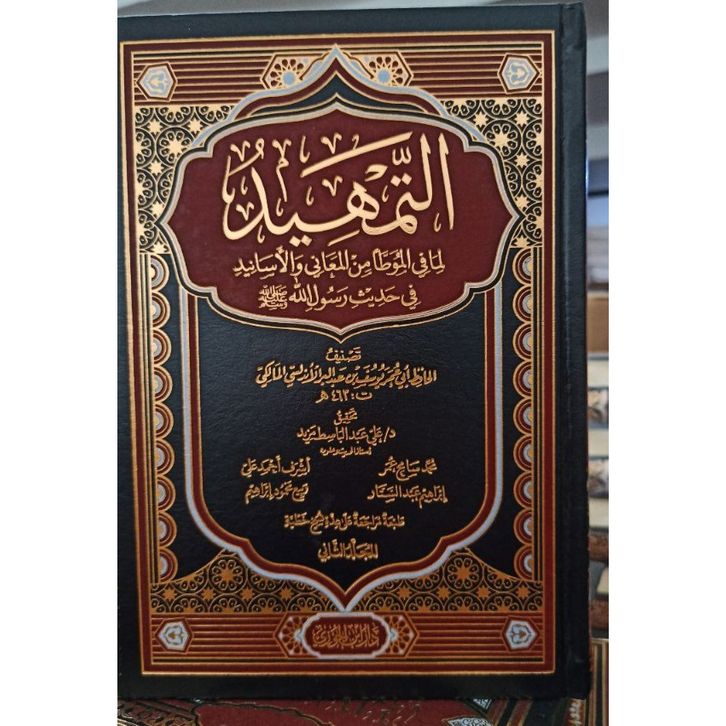 التَّمْهِيدُ
لِمَا فِي المُوَطَّأ مِنَ المَعَانِي وَالأَسَانِيدِ
فِي حَدِيثِ رَسُولِ اللهِ ﷺ
تَصْنِيفُ
الحَافِظ أَبِي عُمَرَ يُوسُفَ بنِ عَبْدِ البَرّ الأَنْدَلُسِيّ المَالِكِيّ
ت: ٤٦٣ هـ
تَحْقِيقُ
د/ عَلِي عَبْد البَاسِط مَزِيد
أستاذ الحديث وعلومه
مُحَمَّد سَامِح عُمَر أَشْرَف أَحْمَد عَلِي
إِبْرَاهِيم عَبْد السَّتَّار رَبِيع مَحْمُود إِبْرَاهِيم
طَبْعَة مُرَاجَعَة عَلَى عِدَّة نُسَخ خَطِّيَّة
المُجَلَّد الثَّانِي
دَار ابْن الجَوْزِي